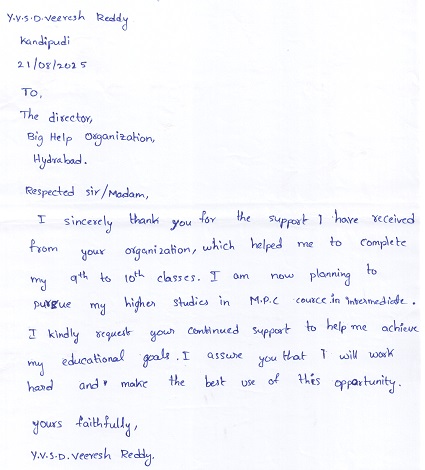 Y.V.S.D.Veeresh Reddy
Kandipudi
21/08/2025
TO,
The director,
Big Help Organization,
Hydrabad.
Respected sir/Madam,
I sincerely thank you for the support I have received
from your organization, which helped me to complete
my 9th to 10th classes. I am now planning to
pursue my higher studies in M.P.C cource in Intermediate.
I kindly request your continued support to help me achieve
my educational goals. I assure you that I will work
hard and make the best use of this opportunity.
yours faithfully,
Y.V.S.D.Veeresh Reddy.